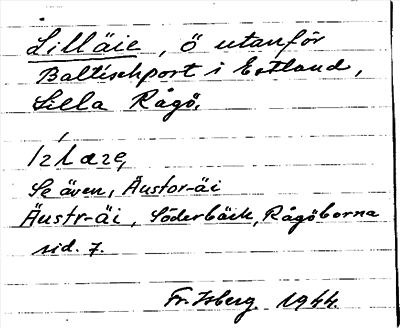 Lilläie, ö utanför
Baltischport i Estland,
Lilla Rågö.
Se även, Äustor-äi
Äustr-äi, Söderbäck, Rågöborna
sid. 7.
Fr. Isberg 1944.